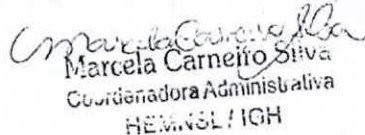 Marcela Carneiro Silva
Coordenadora Administrativa
HEMNSL / IGH